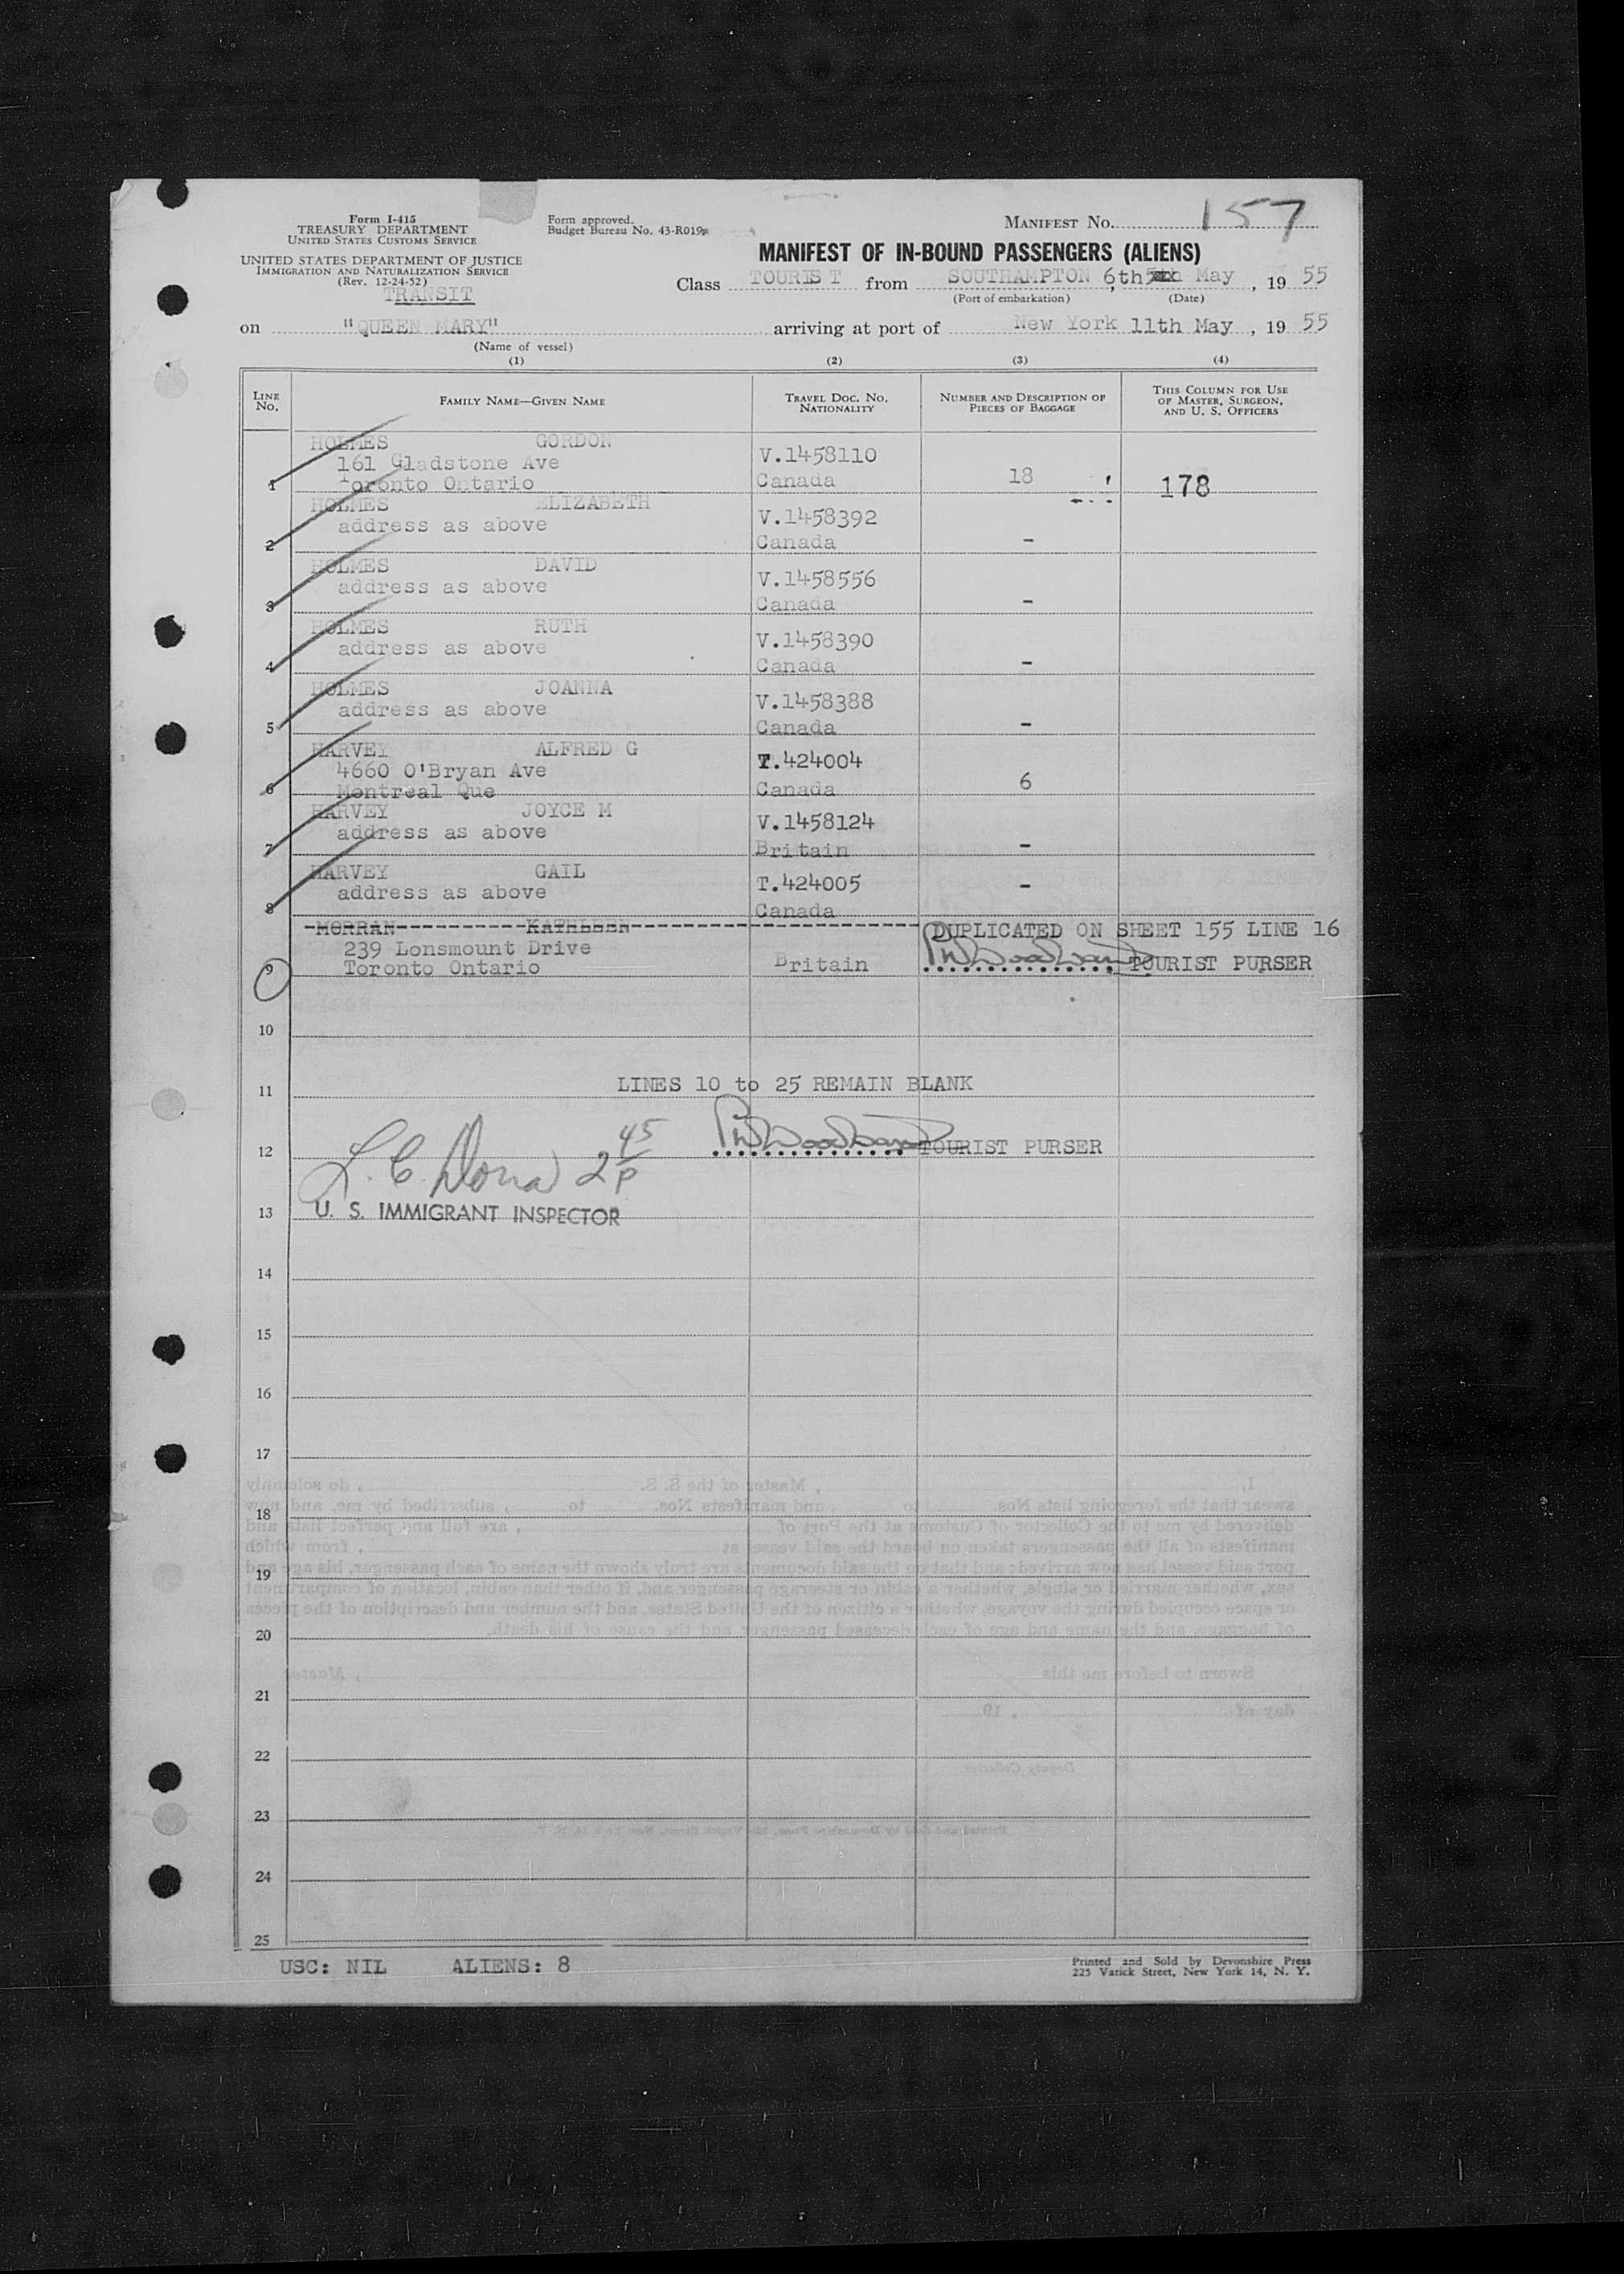 Form I-415
TREASURY DEPARTMENT
UNITED STATES CUSTOMS SERVICE
UNITED STATES DEPARTMENT OF JUSTICE
IMMIGRATION AND NATURALIZATION SERVICE
(Rev. 12-24-52)
TRANSIT
Form approved.
Budget Bureau No. 43-R019
MANIFEST No. 157
MANIFEST OF IN-BOUND PASSENGERS (ALIENS)
Class TOURIST from SOUTHAMPTON, 6th May, 19 55
(Port of embarkation) (Date)
on "QUEEN MARY" arriving at port of New York 11th May, 19 55
(Name of vessel)
(1) (2) (3) (4)
LINE No. FAMILY NAME—GIVEN NAME TRAVEL DOC. NO. NATIONALITY NUMBER AND DESCRIPTION OF PIECES OF BAGGAGE THIS COLUMN FOR USE OF MASTER, SURGEON, AND U. S. OFFICERS
HOLMES GORDON
161 Gladstone Ave V.1458110
1 Toronto Ontario Canada 18 178
HOLMES ELIZABETH
address as above V.1458392
2 Canada -
HOLMES DAVID
address as above V.1458556
3 Canada -
HOLMES RUTH
address as above V.1458390
4 Canada -
HOLMES JOANNA
address as above V.1458388
5 Canada -
HARVEY ALFRED G
4660 O'Bryan Ave T.424004
6 Montreal Que Canada 6
HARVEY JOYCE M
address as above V.1458124
7 Britain -
HARVEY GAIL
address as above T.424005
8 Canada -
-MORRAN----------KATHLEEN---------------------- DUPLICATED ON SHEET 155 LINE 16
239 Lonsmount Drive
9 Toronto Ontario Britain PW Woodward TOURIST PURSER
10
11 LINES 10 to 25 REMAIN BLANK
12 PW Woodward TOURIST PURSER
2 45 P
13 U. S. IMMIGRANT INSPECTOR
14
15
16
17
18
19
20
21
22
23
24
25
USC: NIL ALIENS: 8
Printed and Sold by Devonshire Press
225 Varick Street, New York 14, N. Y.